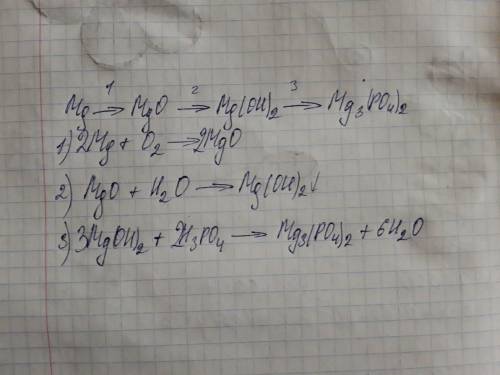 Mg 1→ MgO 2→ Mg(OH)2 3→ Mg3(PO4)2
1) 2Mg + O2 → 2MgO
2) MgO + H2O → Mg(OH)2↓
3) 3MgOH)2 + 2H3PO4 → Mg3(PO4)2 + 6H2O